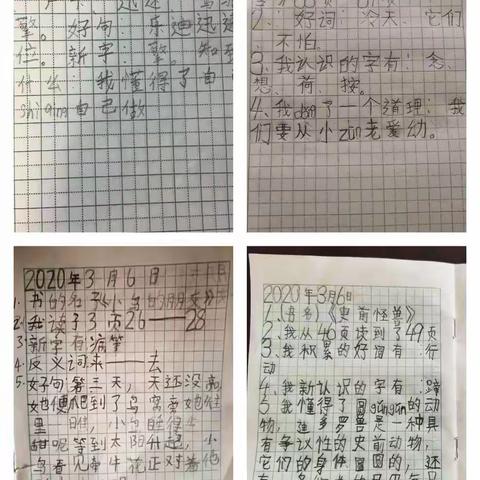 擎。好句:乐迪迅速
位。新字:擎。知到
什么:我懂得了自
shìqing自己做
2、好词:冷天、它们
不怕。
3、我认识的字有:念、
想、荷、按。
4、我dǒng了一个道理:我
们要从小zūn老爱幼。
2020年3月6日
1. 书的名子《小鸟的朋友》
2. 我读了3页26——28
3 新字有:满
4. 反义词来——去
5. 好句:第三天,天还没亮,
她便爬到了鸟窝旁她往
里 小鸟睡得
甜呢等到太阳升起,小
鸟看见牵牛花正对着他
2020年3月6日
1、书名《史前怪兽》
2、我从46页读到了49页
3、我积累的好词有:行
动
4、我新认识的字有:蹄
5、我懂得了圆gǔngǔn的动
物,迪多罗兽是一种具
有争议性的史前动物,
它们的身体圆圆的,还